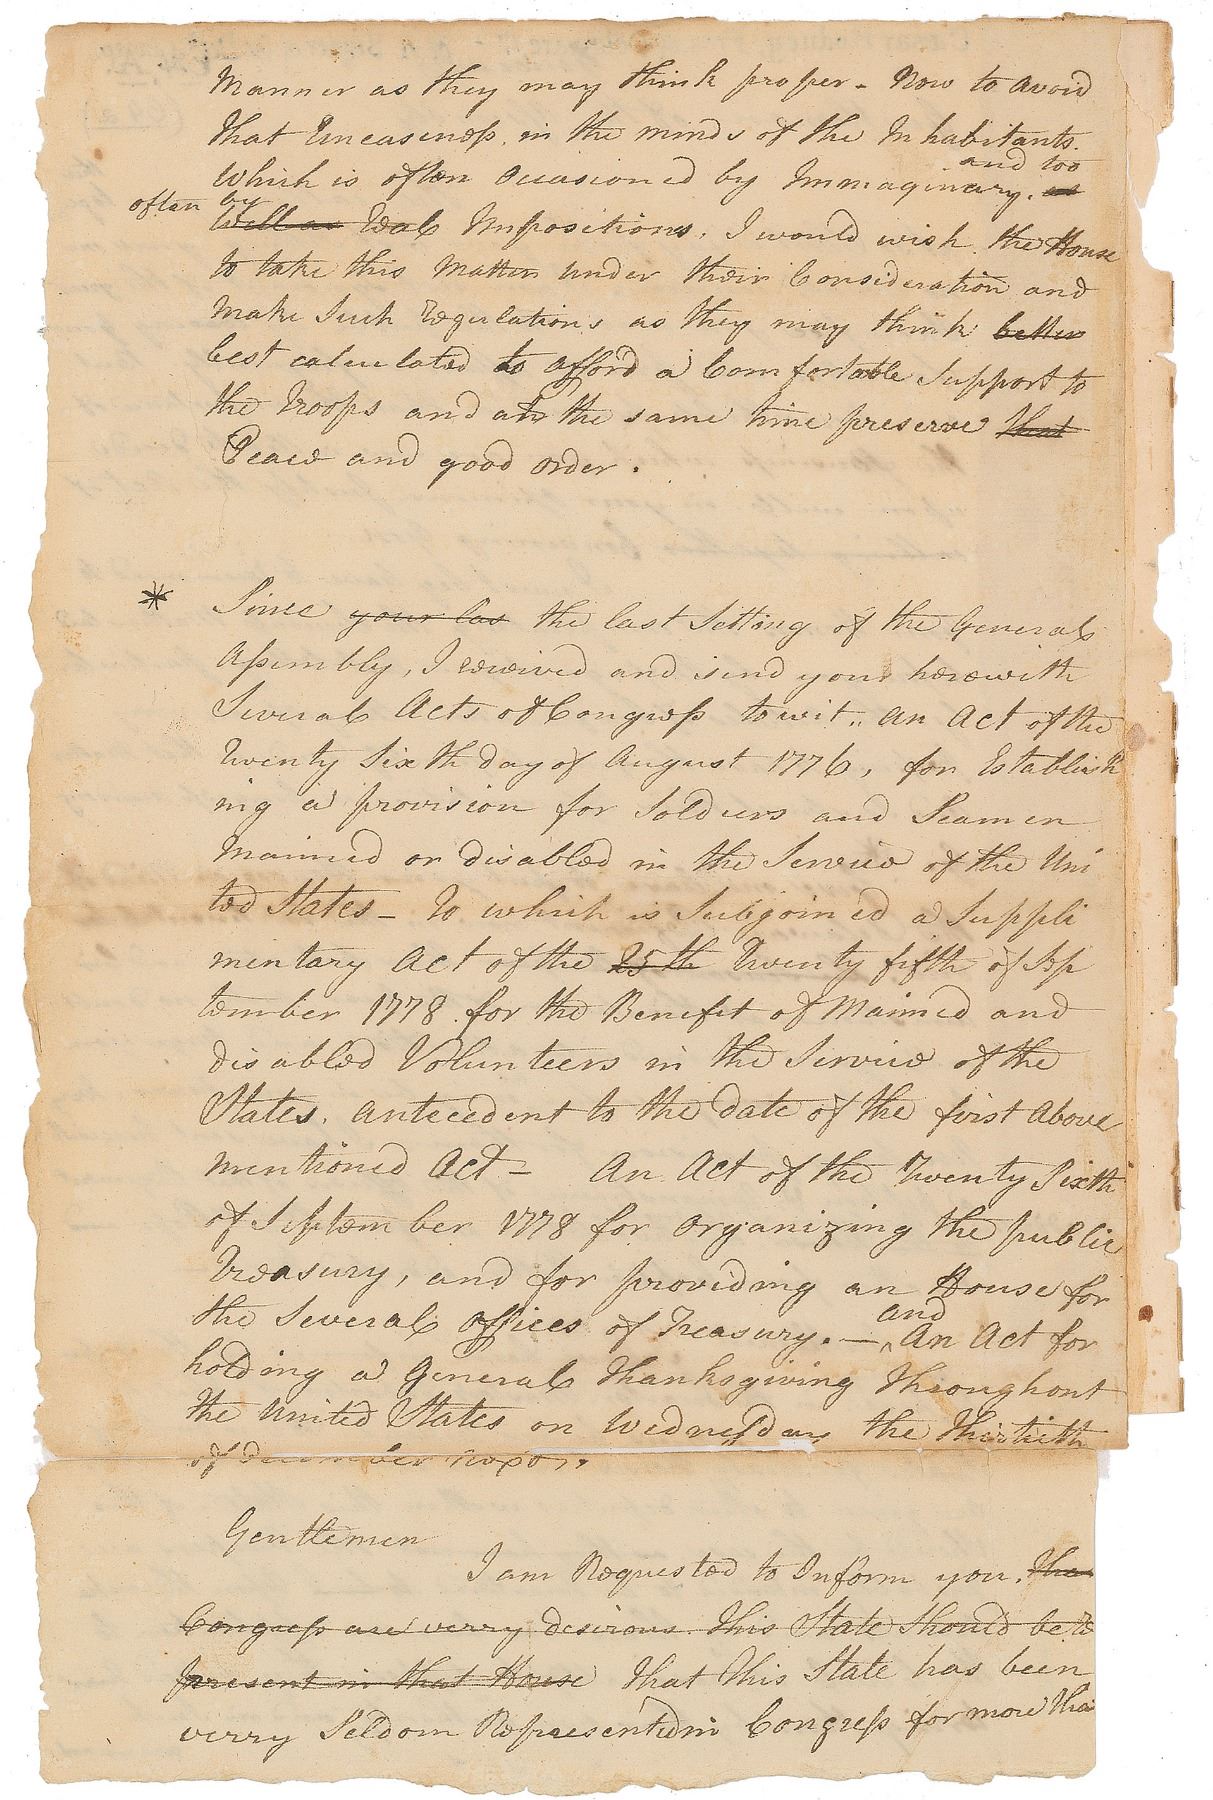 Manner as they may think proper - Now to avoid
that Uneasiness, in the minds of the Inhabitants.
and too
Which is often Occasioned by Immaginary. as
often by
Well as Real Impositions, I would wish the House
to take this Matter under their Consideration and
make Such Regulations as they may think better
best calculated to afford a Comfortable Support to
the Troops and at the same time preserve that
Peace and good order.
* Since your las the last Setting of the General
Assembly, I received and send you herewith
Several Acts of Congress to wit.. an Act of the
Twenty Sixth day of August 1776, for Establish
ing a provision for Soldiers and Seamen
Maimed or disabled in the Service of the Uni
ted States - To which is Subjoined a Suppli
mentary Act of the 25th Twenty fifth of Sep
tember 1778 for the Benefit of Maimed and
disabled Volunteers in the Service of the
States. antecedent to the date of the first Above
mentioned Act - An Act of the Twenty Sixth
of September 1778 for Organizing the public
Treasury, and for providing an House for
the Several offices of Treasury. - and An Act for
holding a General Thanksgiving Throughout
the United States on Wednesday the Thirtieth
of December next.
Gentlemen
I am Requested to Inform you, tha
Congress are verry desirous this State Should be re
present in that House That this State has been
verry Seldom Represented in Congress for more tha